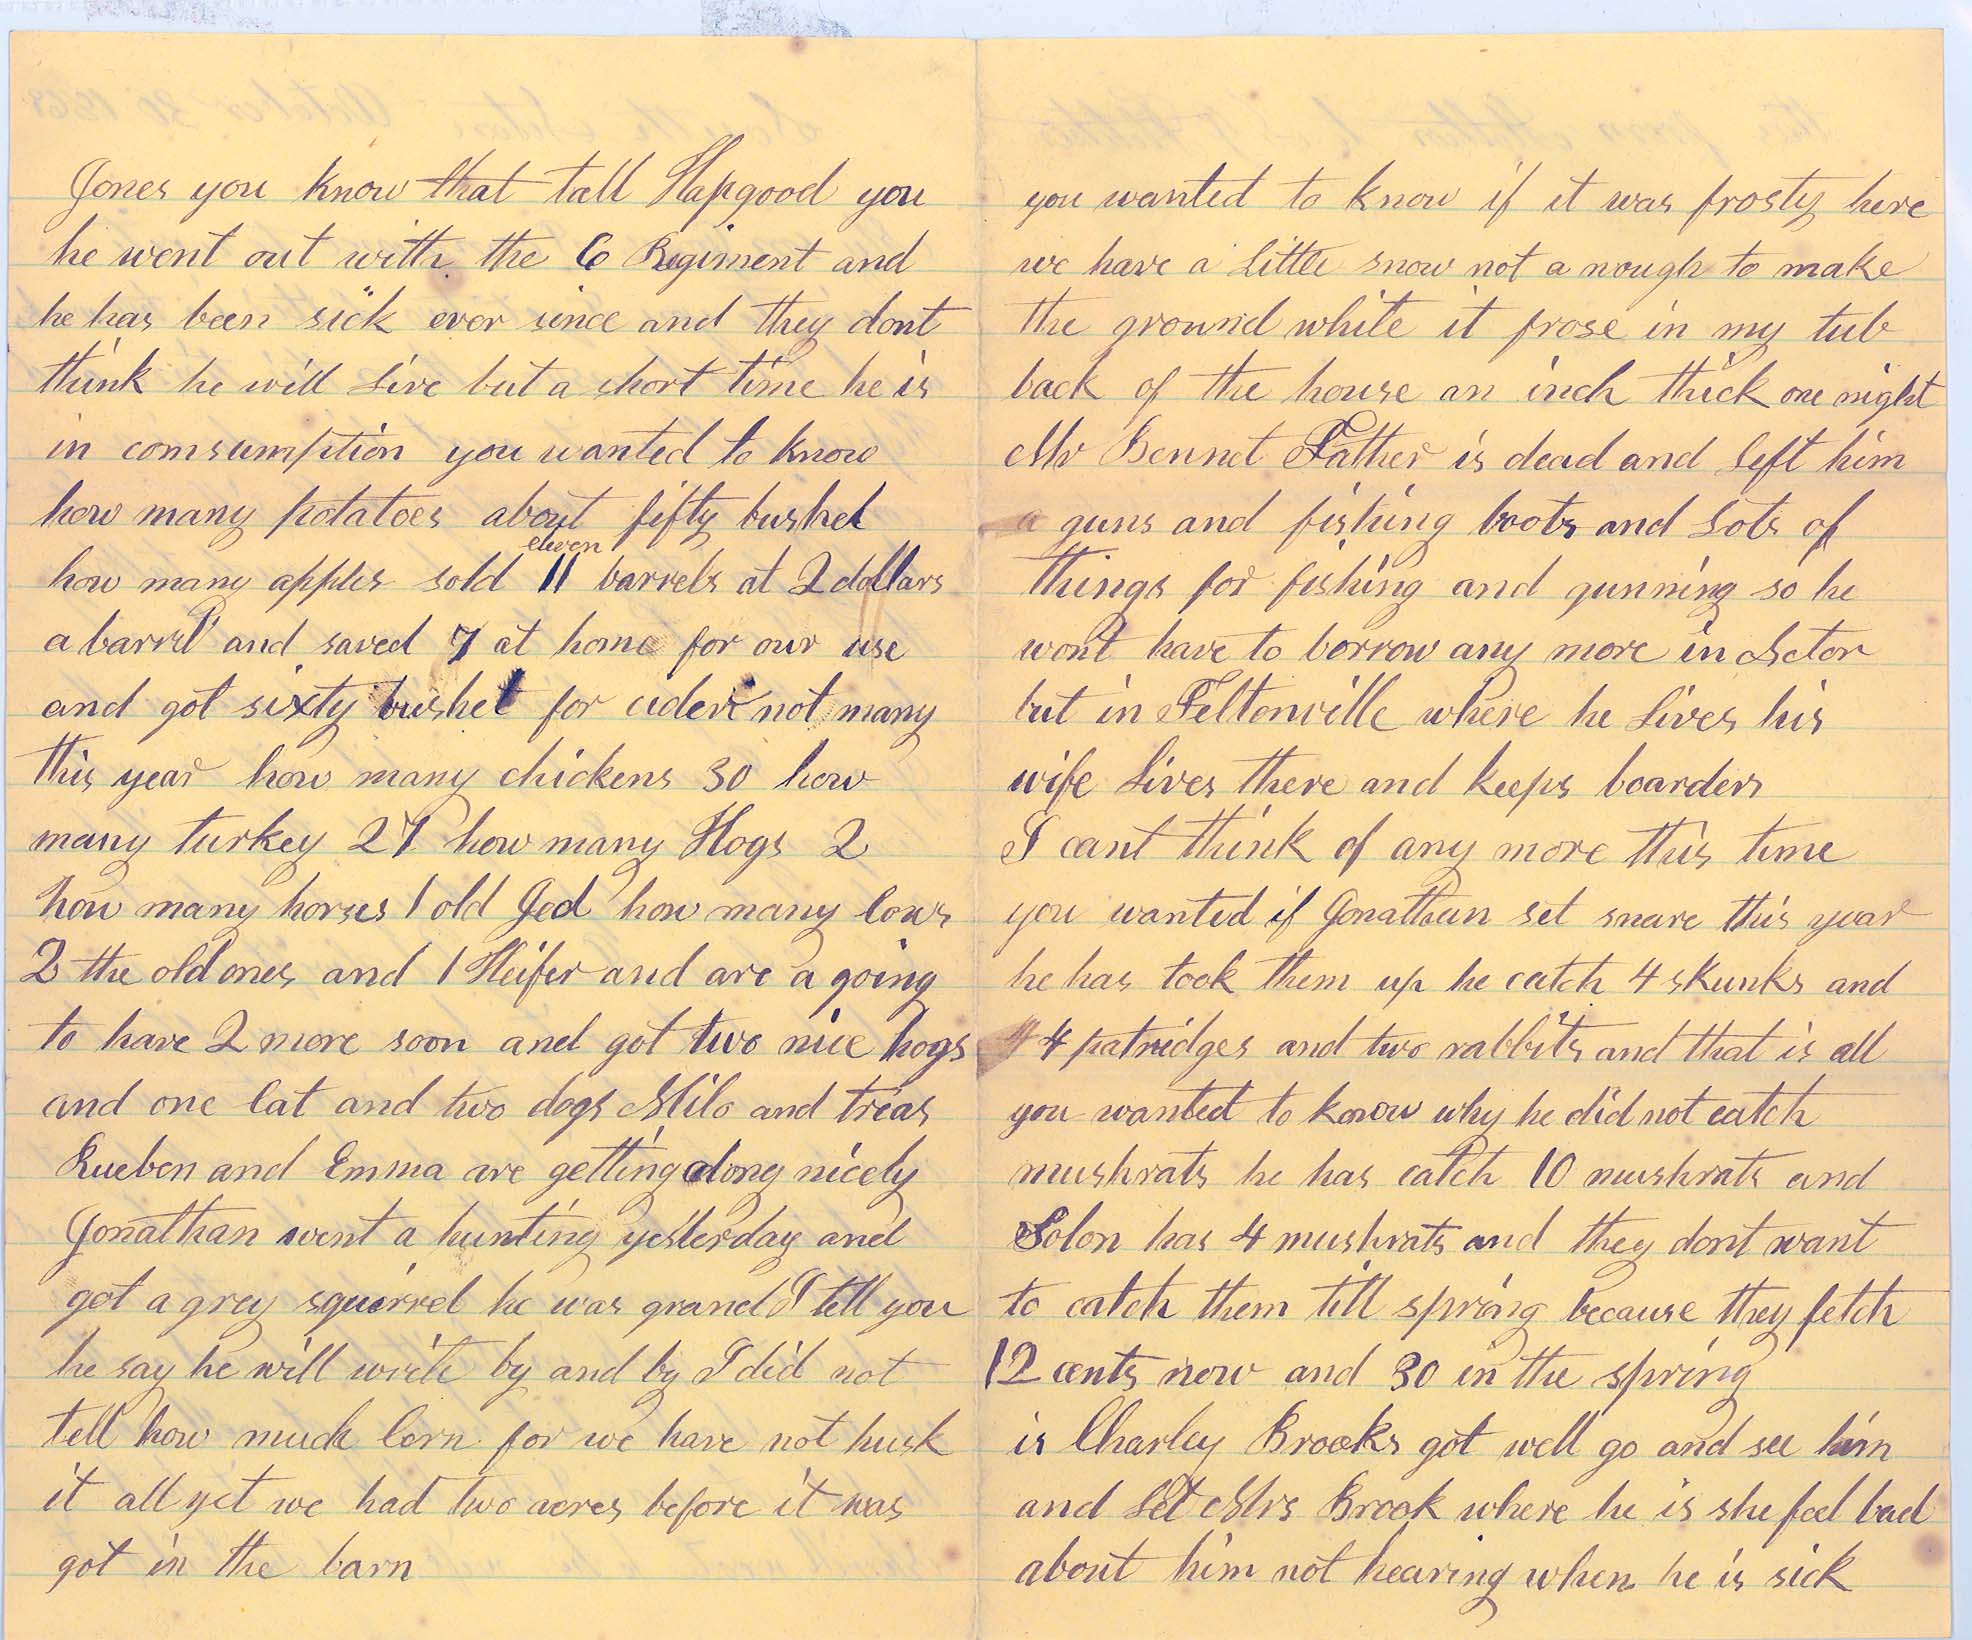 Jones you know that tall Hapgood you
he went out with the 6 Regiment and
he has been sick ever since and they dont
think he will Live but a short time he is
in comsumption you wanted to know
how many potatoes about fifty bushel
eleven
how many apples sold 11 barrels at 2 dollars
a barrel and saved 7 at home for our use
and got sixty bushel for cider not many
this year how many chickens 30 how
many turkey 27 how many Hogs 2
how many horses 1 old Jed how many Cows
2 the old ones and 1 Heifer and are a going
to have 2 more soon and got two nice hogs
and one Cat and two dogs Milo and treas
Rueben and Emma are getting along nicely
Jonathan went a hunting yesterday and
got a grey squirrel he was grand I tell you
he say he will write by and by I did not
tell how much Corn for we have not husk
it all yet we had two acres before it was
got in the barn
you wanted to know if it was frosty here
we have a Little snow not a nough to make
the ground white it frose in my tub
back of the house an inch thick one night
Mr Bennet Father is dead and Left him
a guns and fishing boots and Lots of
things for fishing and gunning so he
wont have to borrow any more in Actor
but in Feltonville where he Lives his
wife Lives there and keeps boarders
I cant think of any more this time
you wanted if Jonathan set snare this year
he has took them up he catch 4 skunks and
4 patridges and two rabbits and that is all
you wanted to know why he did not catch
mushrats he has catch 10 mushrats and
Solon has 4 mushrats and they dont want
to catch them till spring because they fetch
12 cents now and 30 in the spring
is Charley Brooks got well go and see him
and Let Mrs Brook where he is she feel bad
about him not hearing when he is sick